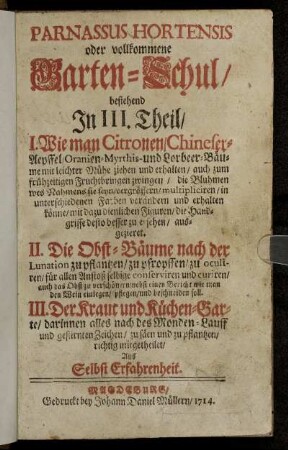 PARNASSUS HORTENSIS
oder vollkommene
Garten-Schul/
bestehend
Jn III. Theil/
I. Wie man Citronen/Chineser-
Aepffel/Oranien-Myrthis-und Lorbeer-Bäu-
me mit leichter Mühe ziehen und erhalten/ auch zum
frühzeitigen Fruchtbringen zwingen / die Bluhmen
wes Nahmens sie seyn/vergrössern/multipliciren/ in
unterschiedenen Farben verändern und erhalten
könne/mit dazu dienlichen Figuren/ die Hand-
griffe desto besser zu ersehen/ aus-
gezieret.
II. Die Obst-Bäume nach der
Lunation zu pflantzen/zu pfropffen/ zu oculi-
ren/ für allen Anstoß selbige conserviren und curiren/
auch das Obst zu verschönern nebst einen Bericht wie man
den Wein einlegen/ pflegen/und beschneiden soll.
III. Der Kraut und Küchen-Gar-
te/ darinnen alles nach des Monden-Lauff
und gestirnten Zeichen/ zu säen und zu pflantzen/
richtig mitgetheilet/
Aus
Selbst Erfahrenheit.
MAGDEBURG/
Gedruckt bey Johann Daniel Müllern/ 1714.